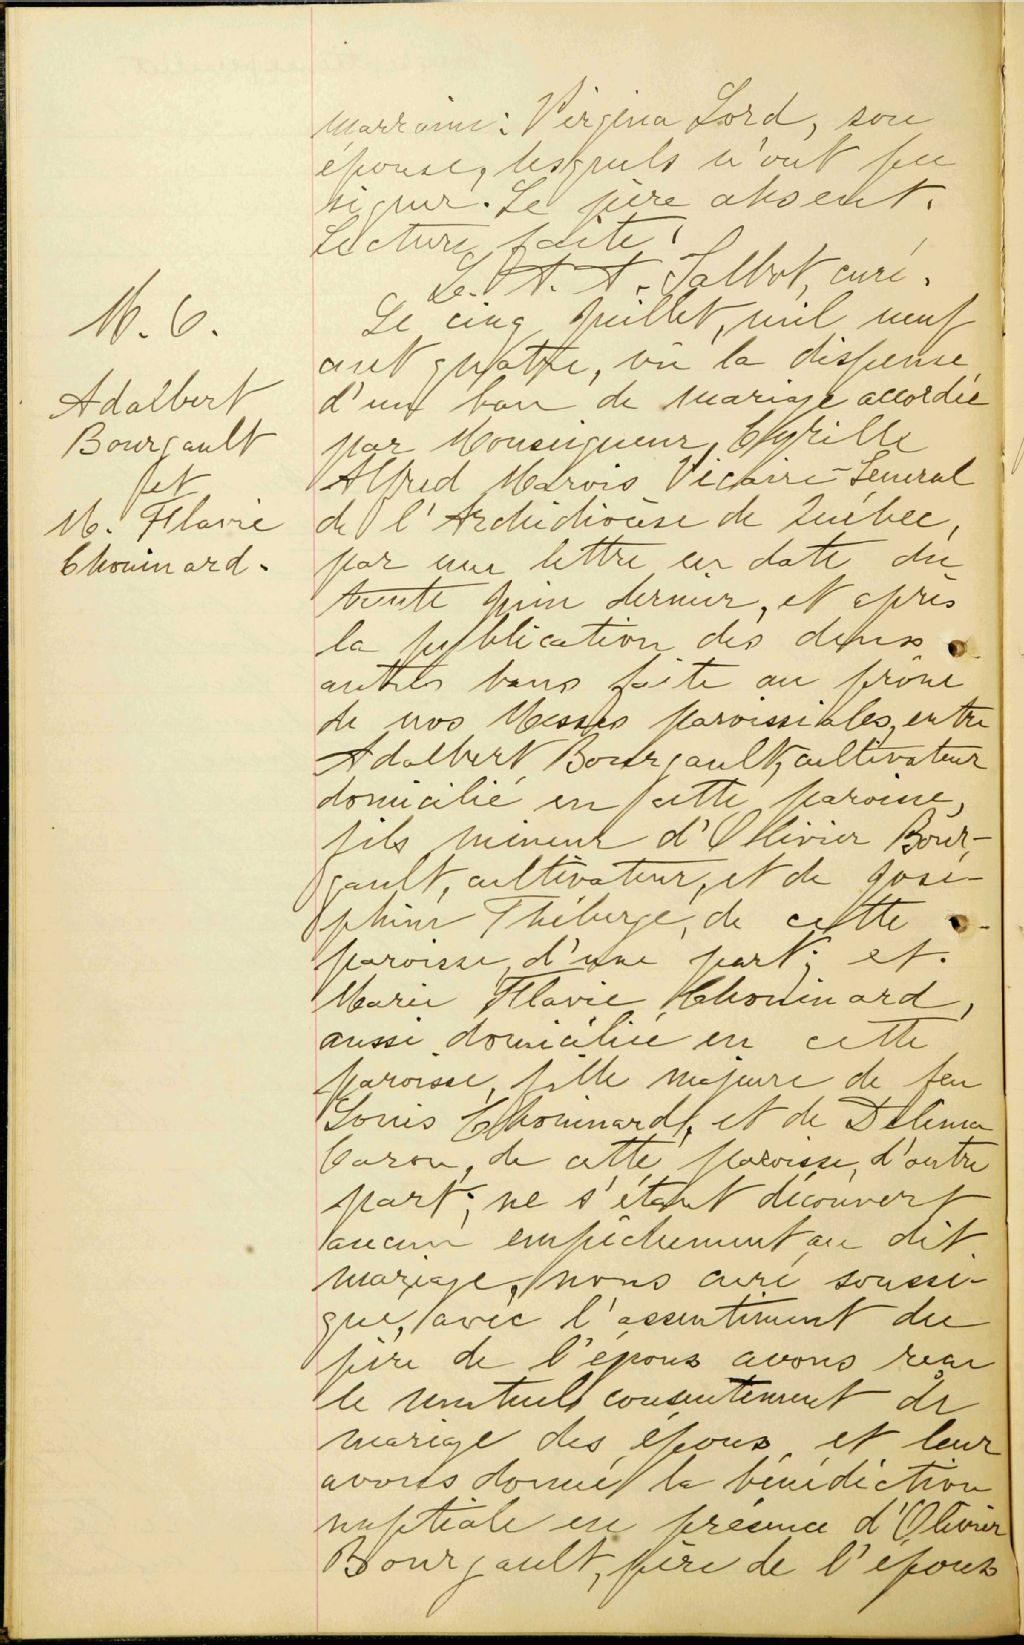 marraine: Virginia Lord, son
épouse, lesquels n'ont pu
signer. Le père absent.
Lecture faite.
L. A. A. Talbot, curé.
M. 6.
Adalbert
Bourgault
et
M. Flavie
Chouinard.
Le cinq Juillet, mil neuf
cent quatre, vu la dispense
d'un ban de mariage accordée
par Monseigneur, Cyrille
Alfred Marois Vicaire-General
de l'Archidiocèse de Québec,
par une lettre en date du
trente Juin dernier, et après
la publication des deux
autres bans faite au prône
de nos Messes paroissiales, entre
Adalbert Bourgault, cultivateur
domicilié en cette paroisse,
fils mineur d'Olivier Bour-
gault, cultivateur, et de José-
phine Théberge, de cette
paroisse, d'une part; et
Marie Flavie Chouinard,
aussi domiciliée en cette
paroisse, fille majeure de feu
Louis Chouinard, et de Delima
Caron, de cette paroisse, d'autre
part; ne s'étant découvert
aucun empêchement au dit
mariage, nous curé soussi-
gné, avec l'assentiment du
père de l'époux avons reçu
le mutuel consentement de
mariage des époux et leur
avons donné la bénédiction
nuptiale en présence d'Olivier
Bourgault, père de l'époux